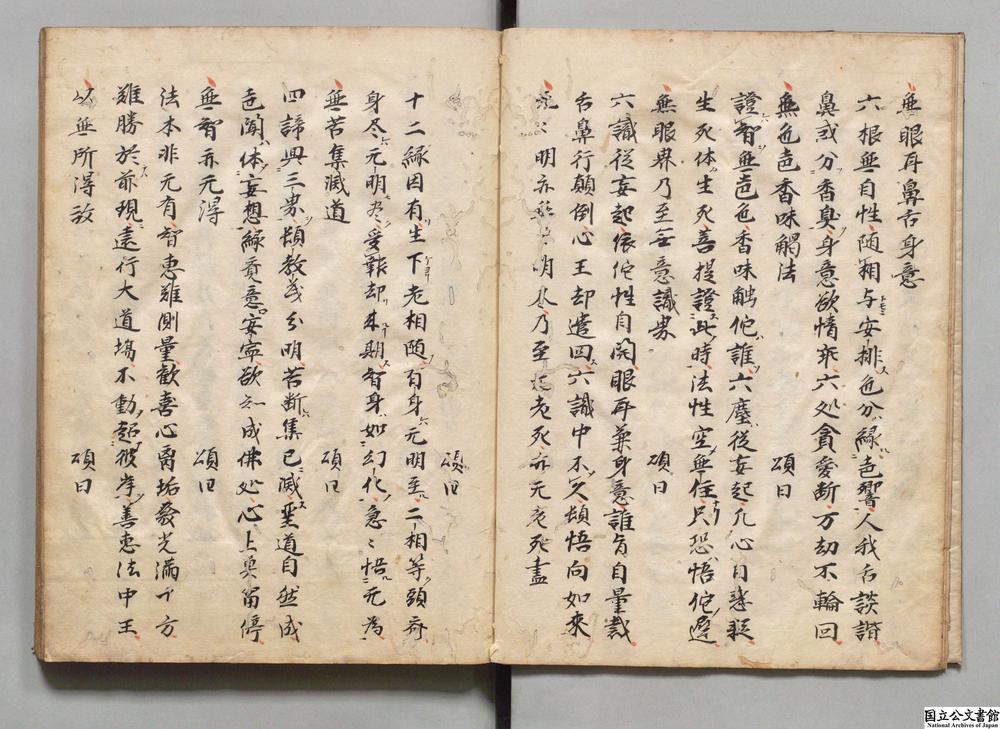 無眼耳鼻舌身意
六根無自性随相与安排色分縁声響人我舌談諧
鼻或分香臭身意欲情乖六処貪愛断万劫不輪回
無色声香味觸法　頌曰
證智無声色香味触佗誰六塵従妄起凡心自惑疑
生死体生死菩提證此時法性空無住只恐悟佗遅
無眼界乃至無意識界　頌曰
六識従妄起依佗性自開眼耳兼身意誰肯自量裁
舌鼻行顛倒心王却遣回六識中不久頓悟向如来
無明亦 明尽乃至 老死亦无老死盡
頌曰
十二縁因有生下老相随有身元明至二相等頭斉
身尽元明尽受報却来期智身如幻化急々悟元為
無苦集滅道　頌曰
四諦興三界頓教義分明苦断集已滅聖道自然成
声聞体妄想縁覚意安寧欲知成佛処心上莫留停
無智亦无得　頌曰
法本非元有智恵難測量歓喜心離垢發光満十方
難勝於前現遠行大道場不動超彼岸善恵法中王
以無所得故　頌曰
国立公文書館
National Archives of Japan